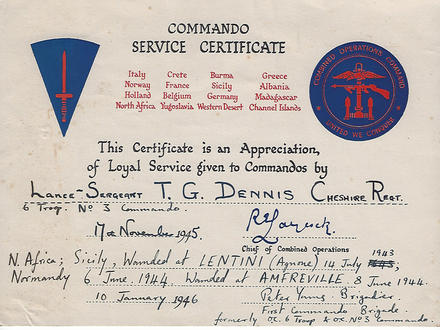 COMMANDO
SERVICE CERTIFICATE
Italy Crete Burma Greece
Norway France Sicily Albania
Holland Belgium Germany Madagascar
North Africa Yugoslavia Western Desert Channel Islands
COMBINED OPERATIONS COMMAND
UNITED WE CONQUER
This Certificate is an Appreciation,
of Loyal Service given to Commandos by
Lance-Sergeant T. G. DENNIS CHESHIRE REGT.
6 Troop. No 3 Commando.
17th November 1945.
Chief of Combined Operations
1943
N. Africa; Sicily, Wounded at LENTINI (Agnone) 14 July
Normandy 6 June 1944. Wounded at AMFREVILLE 8 June 1944.
10 January 1946 Peter Young Brigadier
First Commando Brigade
formerly O.C. 6 Troop & O.C. No 3 Commando.